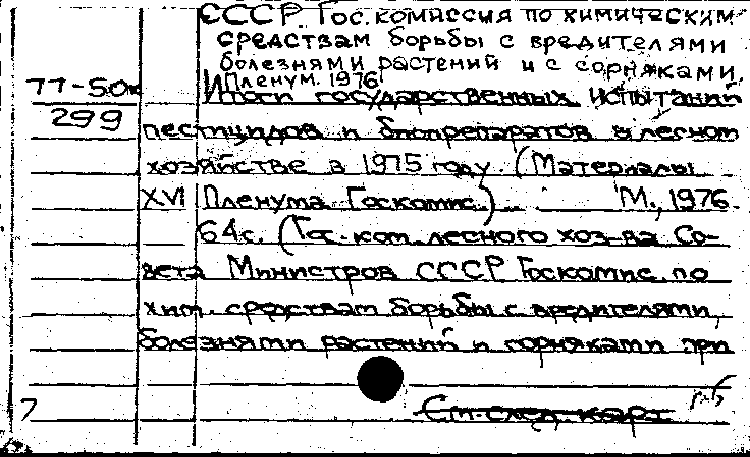 СССР. Гос. комиссия по химическим
средствам борьбы с вредителями
болезнями растений и с сорняками.
Пленум. 1976
77-50к
Итоги государственных испытаний
299
пестицидов и биопрепаратов в лесном
хозяйстве в 1975 году. (Материалы
XVI Пленума Госкомис.) М., 1976.
64с. (Гос. ком. лесного хоз-ва Со-
вета Министров СССР. Госкомис. по
хим. средствам борьбы с вредителями,
болезнями растений и сорняками при
7
См. след. карт.